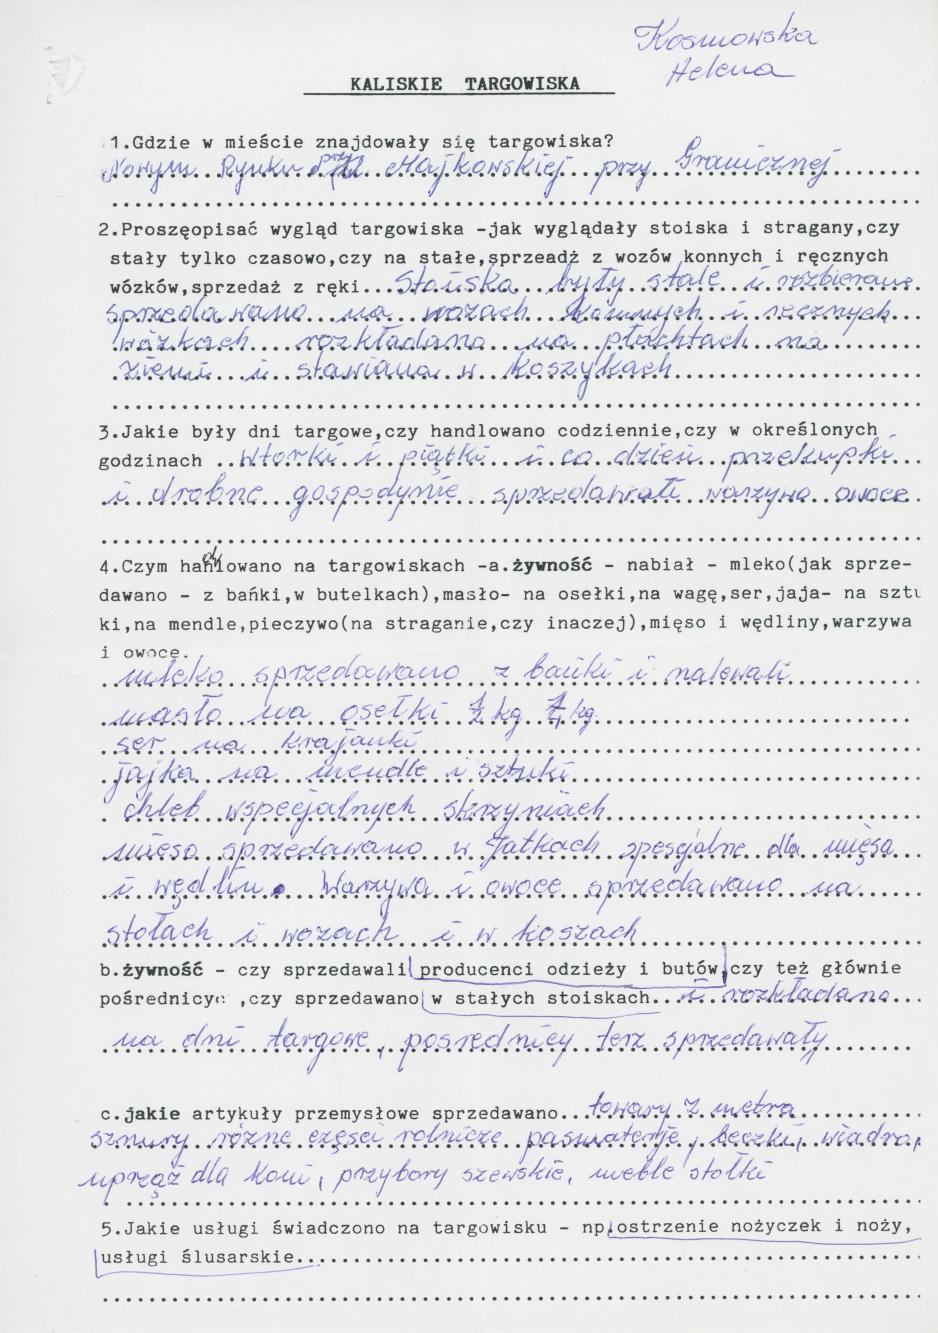 Kosmowska
Helena
KALISKIE TARGOWISKA
1.Gdzie w mieście znajdowały się targowiska?
Nowym Rynku przy ul. Majkowskiej przy Granicznej
2.Proszęopisać wygląd targowiska -jak wyglądały stoiska i stragany,czy
stały tylko czasowo,czy na stałe,sprzeadż z wozów konnych i ręcznych
wózków,sprzedaż z ręki...Stoiska były stałe i rozbierane
sprzedawano na wozach konnych i recznych
wózkach rozkładano na płachtach na
ziemi i stawiana w koszykach
3.Jakie były dni targowe,czy handlowano codziennie,czy w określonych
godzinach ..wtorki i piątki i co dzień przekupki
i drobne gospodynie sprzedawali warzywa owoce
4.Czym handlowano na targowiskach -a.żywność - nabiał - mleko(jak sprze-
dawano - z bańki,w butelkach),masło- na osełki,na wagę,ser,jaja- na sztu
ki,na mendle,pieczywo(na straganie,czy inaczej),mięso i wędliny,warzywa
i owoce.
mleko sprzedawano z bańki i nalewali
masło na osełki ½ kg ¼ kg.
ser na krajanki
jajka na mendle i sztuki
chleb wspecjalnych skrzyniach
mięso sprzedawano w Jatkach spesjalne dla mięsa
i wędlin. Warzywa i owoce sprzedawano na
stołach i wozach i w koszach
b.żywność - czy sprzedawali producenci odzieży i butów,czy też głównie
pośrednicy ,czy sprzedawano w stałych stoiskach...i rozkładano
na dni targowe, posrednicy terz sprzedawały
c.jakie artykuły przemysłowe sprzedawano...towary z metra
sznury różne części rolnicze pasmaterje, beczki, wiadra,
uprząż dla koni, przybory szewskie, meble stołki
5.Jakie usługi świadczono na targowisku - np.ostrzenie nożyczek i noży,
usługi ślusarskie...